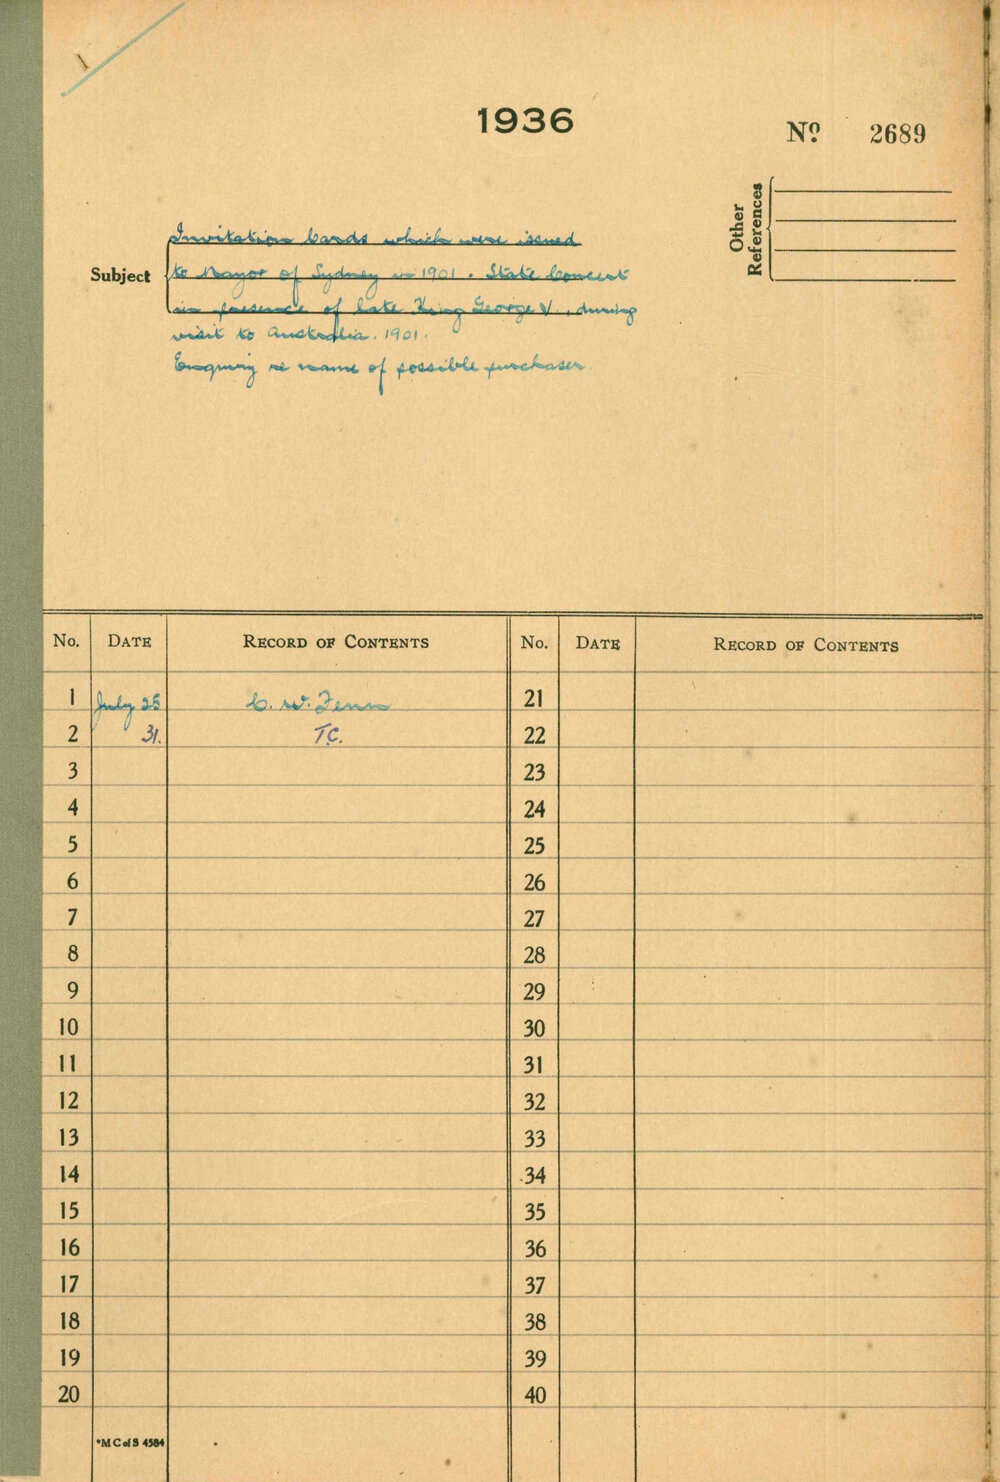 1
1936
No. 2689
Other References
Subject
Invitation Cards which were issued
to Mayor of Sydney in 1901. State Concert
in presence of late King George V, during
visit to Australia. 1901.
Enquiry re name of possible purchaser.
No. DATE RECORD OF CONTENTS No. DATE RECORD OF CONTENTS
1 July 25 C. W. Fenn 21
2 31. T.C. 22
3 23
4 24
5 25
6 26
7 27
8 28
9 29
10 30
11 31
12 32
13 33
14 34
15 35
16 36
17 37
18 38
19 39
20 40
*M C of S 4584